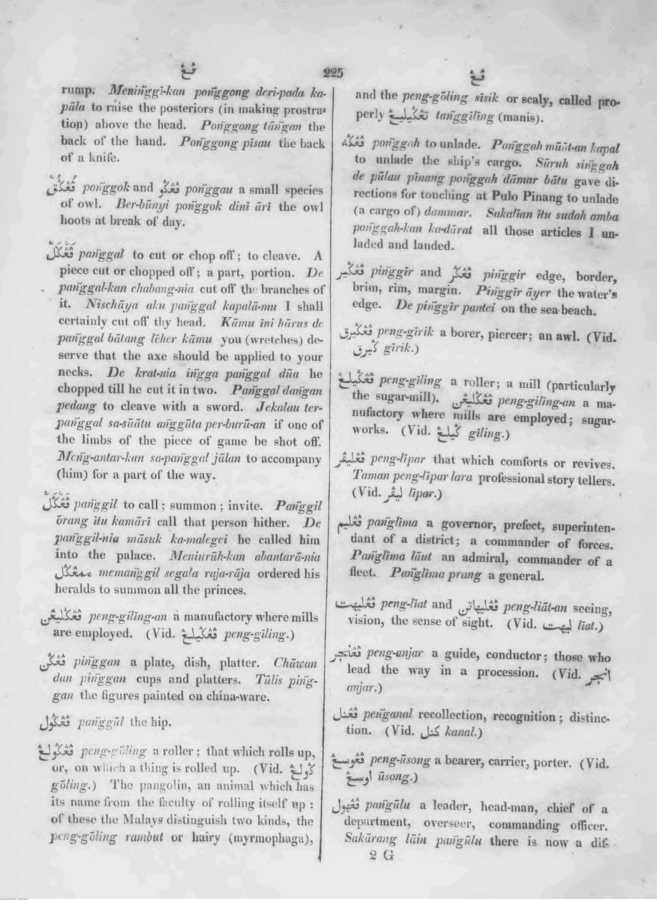 ڤڠ 225 ڤڠ
rump. Meninggī-kan ponggong deri-pada ka-
pāla to raise the posteriors (in making prostra-
tion) above the head. Ponggong tāngan the
back of the hand. Ponggong pīsau the back
of a knife.
ڤڠݢق ponggok and ڤڠݢو ponggau a small species
of owl. Ber-būnyi ponggok dini āri the owl
hoots at break of day.
ڤڠݢل panggal to cut or chop off; to cleave. A
piece cut or chopped off; a part, portion. De
panggal-kan chabang-nia cut off the branches of
it. Nischāya aku panggal kapalā-mu I shall
certainly cut off thy head. Kāmu īni hārus de
panggal bātang lēher kāmu you (wretches) de-
serve that the axe should be applied to your
necks. De krat-nia ingga panggal dūa he
chopped till he cut it in two. Panggal dangan
pedang to cleave with a sword. Jekalau ter-
panggal sa-sūātu anggūta per-burū-an if one of
the limbs of the piece of game be shot off.
Meng-antar-kan sa-panggal jālan to accompany
(him) for a part of the way.
ڤڠݢل panggil to call; summon; invite. Panggil
ōrang ītu kamāri call that person hither. De
panggil-nia māsuk ka-malegei he called him
into the palace. Meniurūh-kan abantarā-nia
ممڠݢل memanggil segala raja-rāja ordered his
heralds to summon all the princes.
ڤڠݢليڠن peng-gīling-an a manufactory where mills
are employed. (Vid. ڤڠݢيليڠ peng-gīling.)
ڤڠݢن pinggan a plate, dish, platter. Chāwan
dan pinggan cups and platters. Tūlis ping-
gan the figures painted on china-ware.
ڤڠݢول panggūl the hip.
ڤڠݢوليڠ peng-gōling a roller; that which rolls up,
or, on which a thing is rolled up. (Vid. ݢوليڠ
gōling.) The pangolin, an animal which has
its name from the faculty of rolling itself up:
of these the Malays distinguish two kinds, the
peng-gōling rambut or hairy (myrmophaga),
and the peng-gōling sīsik or scaly, called pro-
perly تڠݢيليڠ tanggīling (manis).
ڤڠݢه ponggah to unlade. Ponggah mūāt-an kapal
to unlade the ship's cargo. Sūruh singgah
de pūlau pīnang ponggah dāmar bātu gave di-
rections for touching at Pulo Pinang to unlade
(a cargo of) dammar. Sakalīan ītu sudah amba
ponggah-kan ka-dārat all those articles I un-
laded and landed.
ڤڠݢير pinggīr and ڤڠݢر pinggir edge, border,
brim, rim, margin. Pinggīr āyer the water's
edge. De pinggīr pantei on the sea-beach.
ڤڠݢيرق peng-gīrik a borer, piercer; an awl. (Vid.
ݢيرق gīrik.)
ڤڠݢيليڠ peng-gīling a roller; a mill (particularly
the sugar-mill). ڤڠݢليڠن peng-gīling-an a ma-
nufactory where mills are employed; sugar-
works. (Vid. ݢيليڠ gīling.)
ڤڠليڤر peng-līpar that which comforts or revives.
Taman peng-līpar lara professional story tellers.
(Vid. ليڤر līpar.)
ڤڠليم panglīma a governor, prefect, superinten-
dant of a district; a commander of forces.
Panglīma lāut an admiral, commander of a
fleet. Panglīma prang a general.
ڤڠليهت peng-līat and ڤڠليهاتن peng-līāt-an seeing,
vision, the sense of sight. (Vid. ليهت līat.)
ڤڠانجر peng-anjar a guide, conductor; those who
lead the way in a procession. (Vid. انجر
anjar.)
ڤڠنل penganal recollection, recognition; distinc-
tion. (Vid. كنل kanal.)
ڤڠوسڠ peng-ūsong a bearer, carrier, porter. (Vid.
اوسڠ ūsong.)
ڤڠهول pangūlu a leader, head-man, chief of a
department, overseer, commanding officer.
Sakārang lāin pangūlu there is now a dif-
2 G